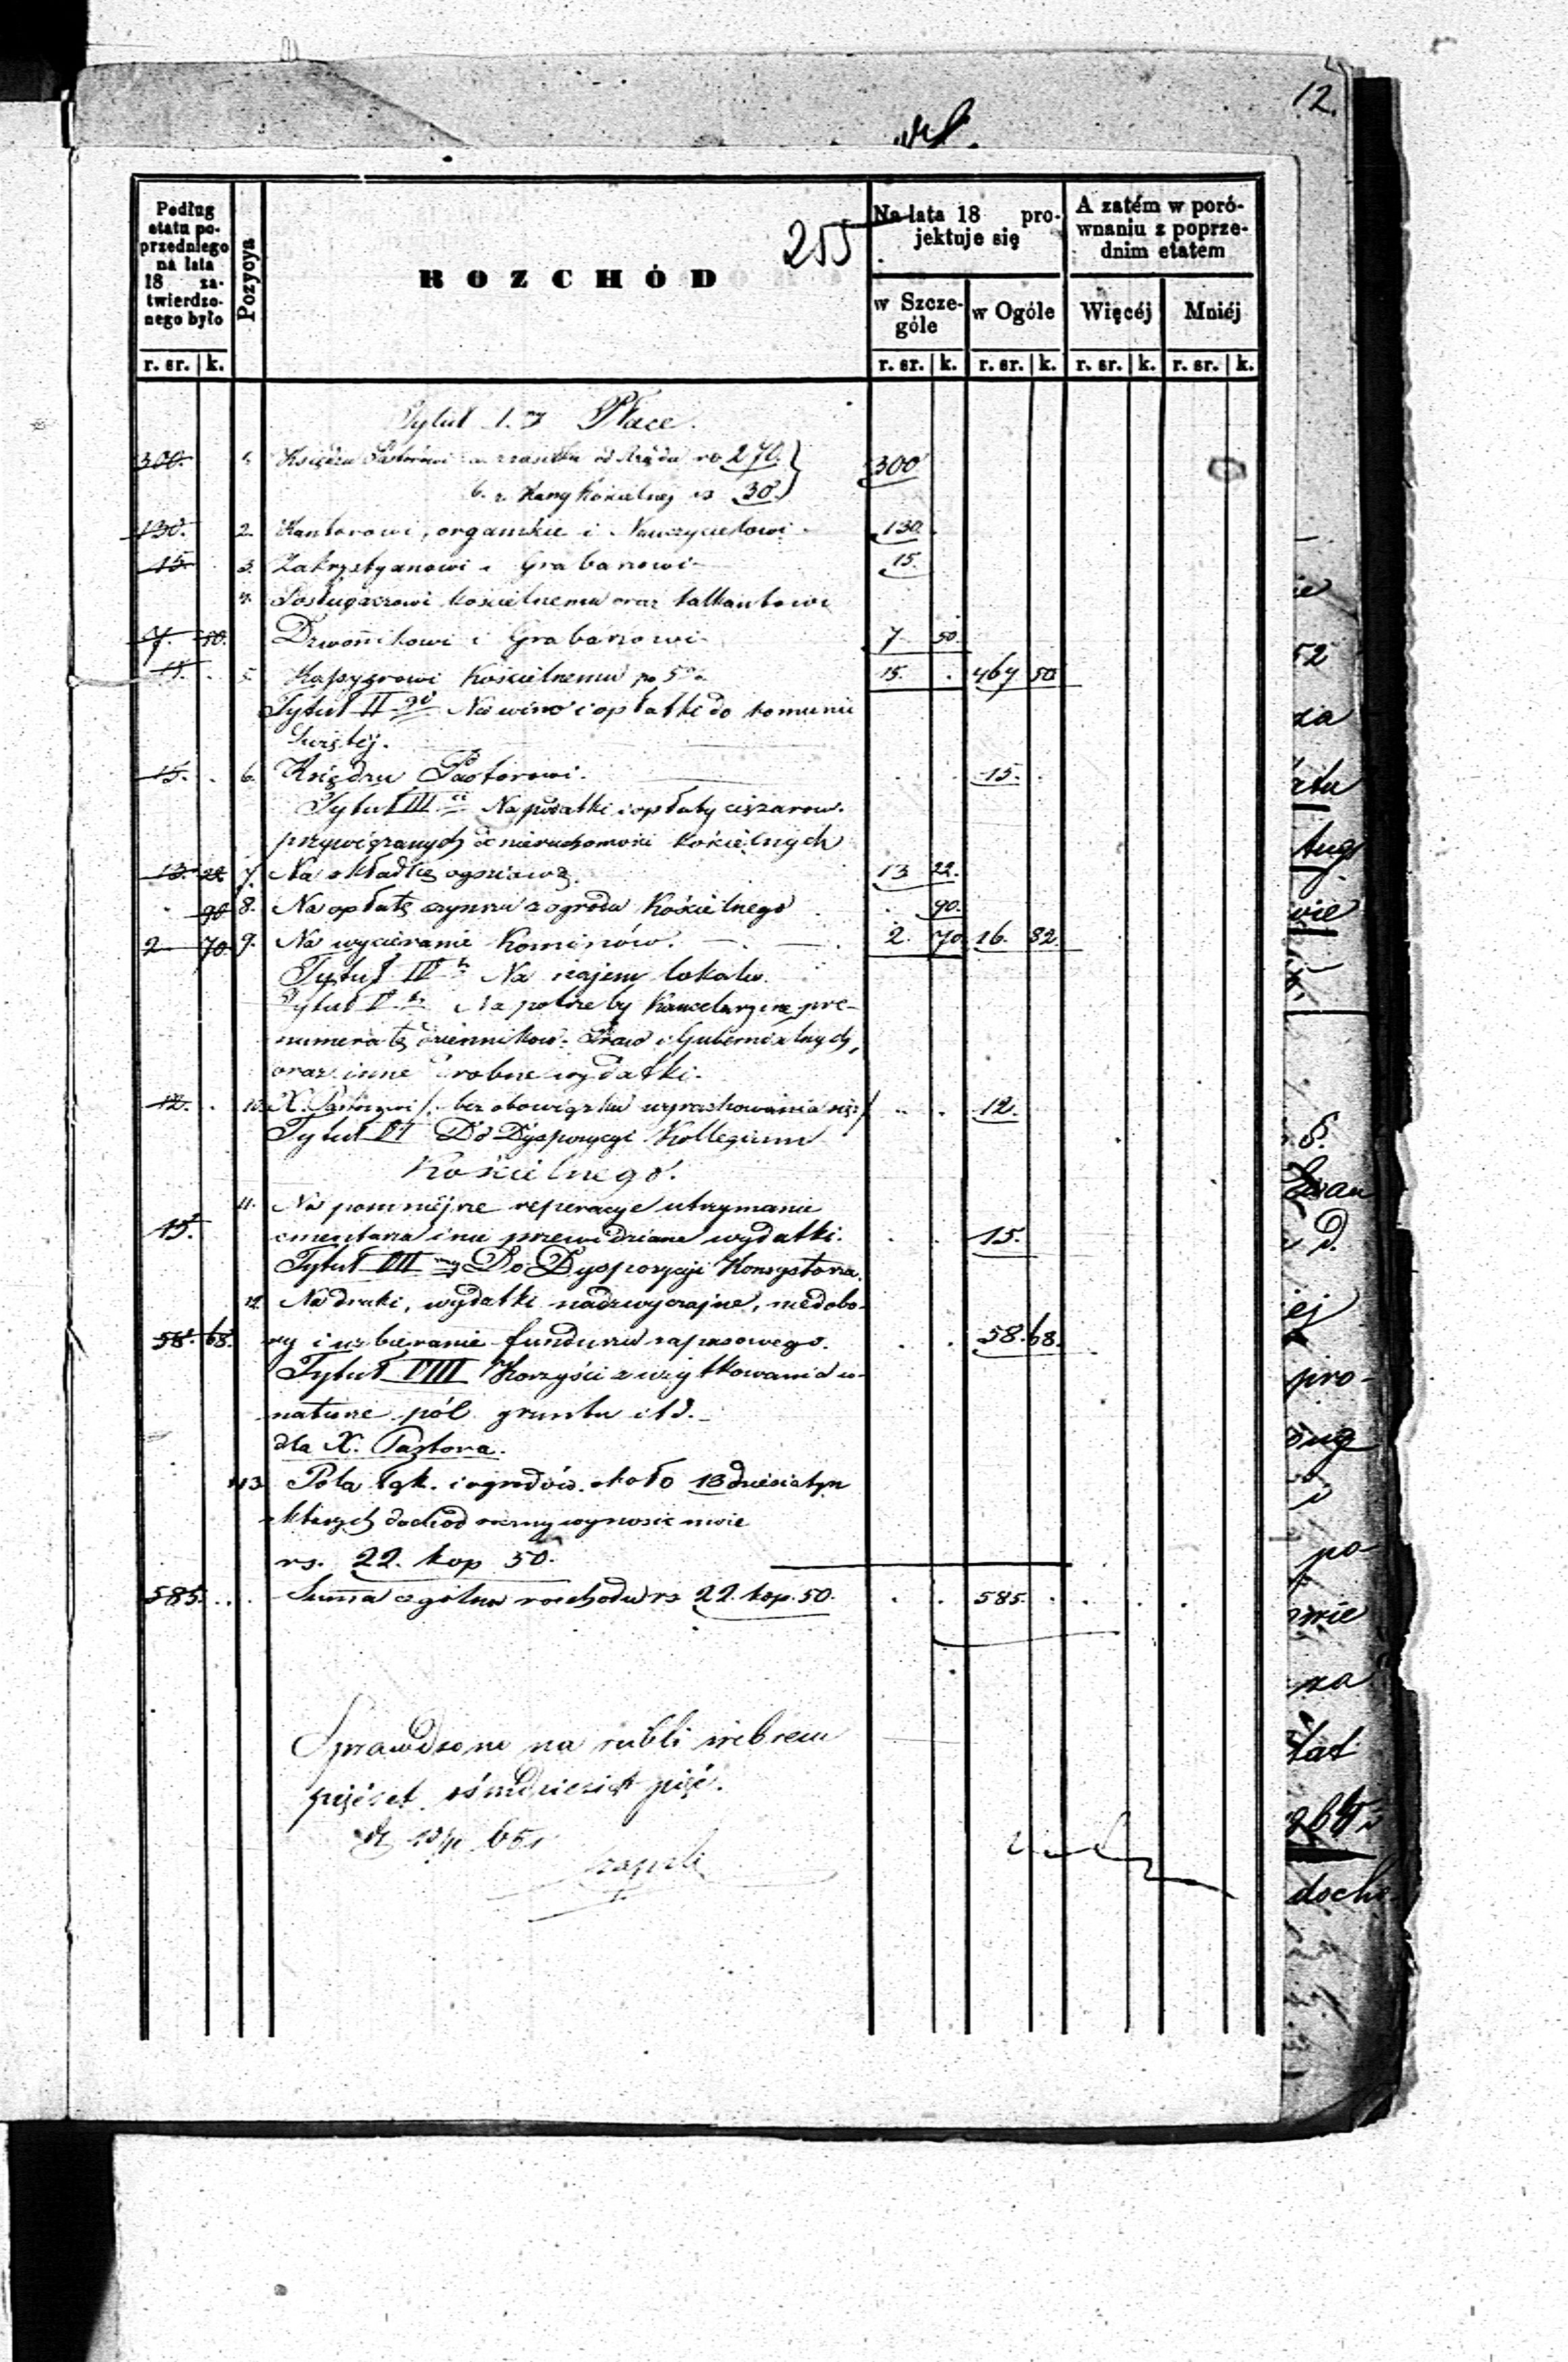 12.
255
Podług etatu poprzedniego na lata 18 zatwierdzonego było
Pozycya
ROZCHÓD
Na lata 18 projektuje się
A zatém w porównaniu z poprzednim etatem
w Szczególe
w Ogóle
Więcéj
Mniéj
r. sr. k. r. sr. k. r. sr. k. r. sr. k. r. sr. k.
Tytuł I. Płace.
300. 1. Księdzu Pastorowi a. z zasiłku od Rządu rs 270. 300
b. z Kassy Kościelnej rs 30.
130. 2. Kantorowi, organiście i Nauczycielowi 130.
15. 3. Zakrystyanowi i Grabarzowi 15.
4. Posługaczowi kościelnemu oraz kalkantowi
7. 50. Dzwonnikowi i Grabarzowi 7 50.
15. 5. Kassyerowi Kościelnemu po 5% 15. 467 50
Tytuł II-gi Na wino i opłatki do komunii
Świętej.
15. 6. Księdzu Pastorowi. 15.
Tytuł III Na podatki i opłaty ciężarow.
przywiązanych do nieruchomości kościelnych
13. 22 7. Na składkę ogniową. 13 22.
90 8. Na opłatę czynszu z ogrodu Kościelnego 90.
2 70. 9. Na wycieranie Kominów. 2. 70 16. 82.
Tytuł IV Na najem lokalu.
Tytuł V Na potrzeby Kancelaryjne, pre-
numeratę dzienników Praw i Gubernialnych,
oraz inne drobne wydatki.
12. 10. X. Pastorowi /: bez obowiązku wyrachowania się :/ 12.
Tytuł VI Do Dyspozycyi Kollegium
Kościelnego.
11. Na pomniejsze reperacye utrzymanie
15. cmentarza i nieprzewidziane wydatki. 15.
Tytuł VII Do Dyspozycyi Konsystorza.
12. Na druki, wydatki nadzwyczajne, niedobo-
58. 68. ry i uzbieranie funduszu zapasowego. 58. 68.
Tytuł VIII Korzyści z użytkowania w
naturze pól gruntu itd.
dla X. Pastora.
13 Pola łąk. i ogrodów około 13 dziesiatyn
których dochód roczny wynosić może
rs. 22. kop 50.
585. Summa ogólna rozchodu rs 22. kop. 50. 585.
Sprawdzono na rubli srebrem
pięćset ośmdziesiąt pięć.